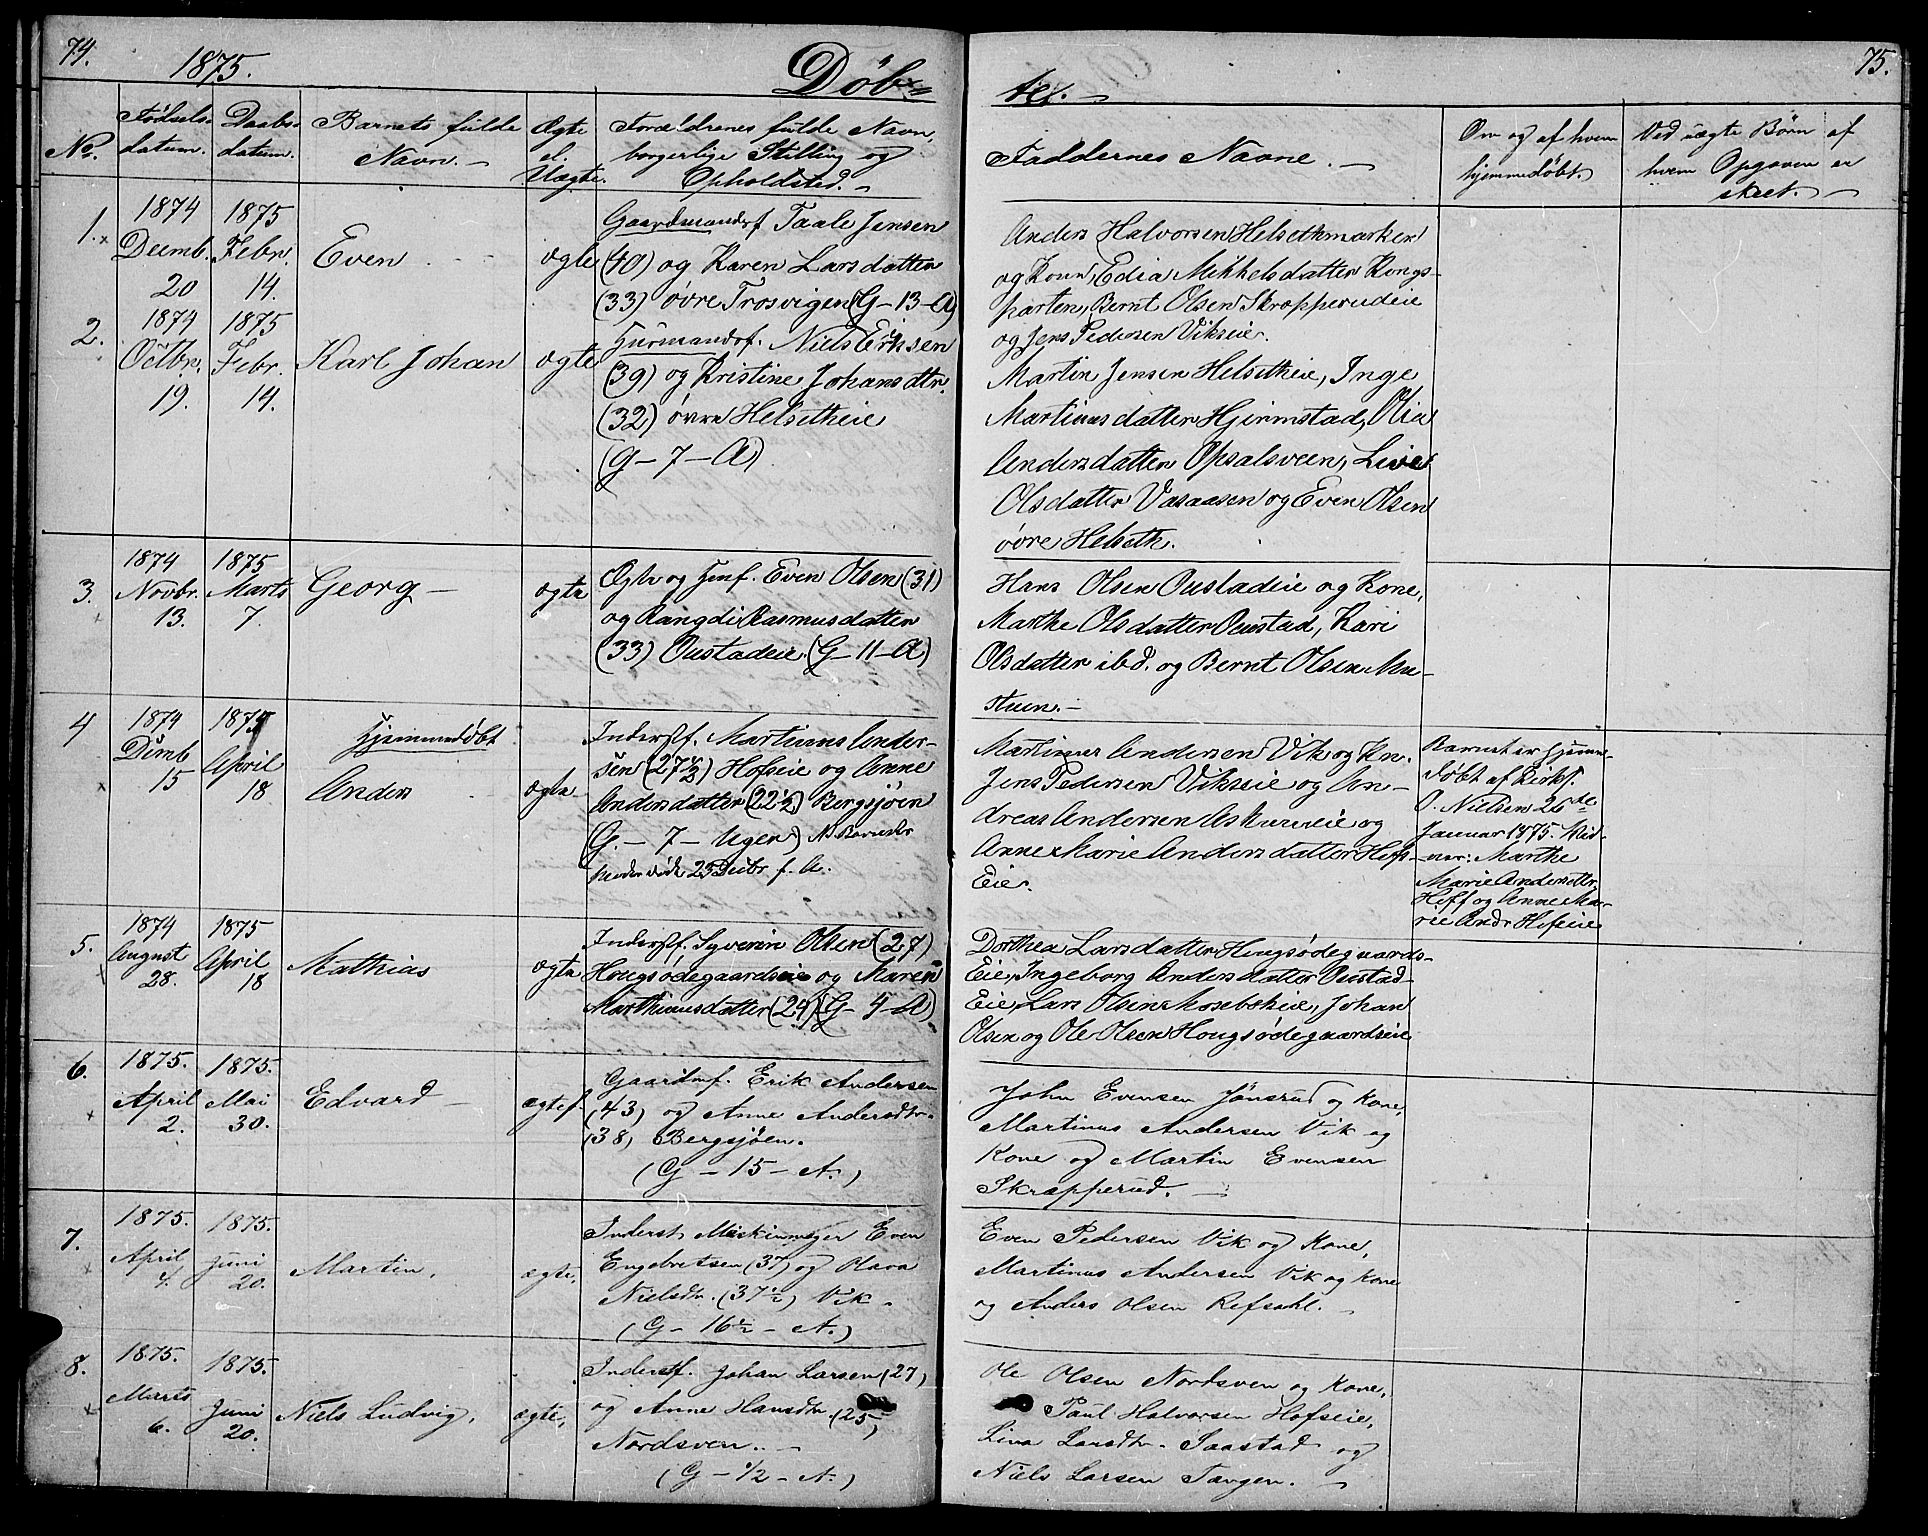 74.
1875.
Døb-
No.
Fødsels-
datum.
Daabs-
datum.
Barnets fulde
Navn. -
Ægte
el.
Uægte.
Forældrenes fulde Navn,
borgerlige Stilling og
Opholdsted. -
1.
1874
Decemb.
20
1875
Febr.
14.
Even
ægte
Gaardmandsf Taale Jensen
(40) og Karen Larsdatter
(33) øvre Trosvigen (G-13-A)
2.
1874
Octbr.
19.
1875
Febr.
14.
Karl Johan
ægte
Husmandsf. Niels Eriksen
(39) og Kristine Johansdtr.
(32) øvre Helsetheie
(G-7-A)
3.
1874
Novbr.
13.
1875
Marts
7.
Georg -
ægte
og Jmf. Even Olsen (31)
og Rangdi Rasmusdatter
(33) Oustadeie. (G-11-A)
4
1874
Decmb
15
1875
April
18
Hjemmedøbt
Anders
ægte
Inderstf. Martinus Ander-
sen (27½) Hofseie og Anne
Andersdatter (22½) Bergsjøen
(G.-7-Ugen)
5.
1874
August
28.
1875
April
18
Mathias
ægte
Inderstf. Syverin Olsen (27)
Hougsødegaardseie og Maren
Marthinusdatter (24) (G-4-A)
6.
1875.
April
2.
1875.
Mai
30.
Edvard -
ægtef.
Gaardmf. Erik Andersen
(43) og Anne Andersdtr.
(38) Bergsjøen.
(G-15-A.)
7.
1875.
April
4.
1875.
Juni
20.
Martin.
ægte,
Inderst, Even
Engebretsen (37) og Olava
Nielsdtr. (37½) Vik.
(G-16½-A.)
8.
1875.
Marts
6.
1875.
Juni
20.
Niels Ludvig,
ægte,
Inderstf. Johan Larsen (27)
og Anne Hansdtr. (25)
Nordsven. -
(G-½-A.)
75.
te. -
Faddernes Navne. -
Om og af hvem
hjemmedøbt.
Ved uægte Børn af
hvem Opgaven er
skeet. -
Anders Halvorsen Helsethmarken
og Kone, Edia Mikkelsdatter Kongs-
parten, Bernt Olsen Skrapperudeie
og Jens Pedersen Vikseie.
Martin Jensen Helsetheie, Inge
Martinusdatter Hjermstad, Olia
Andersdatter Opsalsveen, Live
Olsdatter Vasaasen og Even Olsen
øvre Helseth.
Hans Olsen Oustadeie og Kone,
Marthe Olsdatter Oustad, Kari
Olsdatter ibd. og Bernt Olsen Mu-
stuen. -
Martinus Andersen Vik og Kn.
Jens Pedersen Vikseie og An-
dreas Andersen og
Anne Marie Andersdatter Hofs-
Eie.
Barnet er hjemme-
døbt af Kirks.
O. Nielsen 26de
Januar 1875. Vid-
ner: Marthe
Marie Andersdtr.
Hoff og Anne Ma-
rie Andr Hofseie
Dorthea Larsdatter Hougsødegaards-
Eie, Ingeborg Andersdatter Oustad-
Eie, Lars Olsen Mosebekeie, Johan
Olsen og Ole Olsen Hougsødegaardseie
John Evensen Jønsrud og Kone,
Martinus Andersen Vik og
Kone og Martin Evensen
Skrapperud. -
Even Pedersen Vik og Kone,
Martinus Andersen Vik og Kone
og Anders Olsen Refsahl. -
Ole Olsen Nordsven og Kone,
Paul Halvorsen Hofseie,
Lina Larsdtr. Saastad og
Niels Larsen Tangen. -